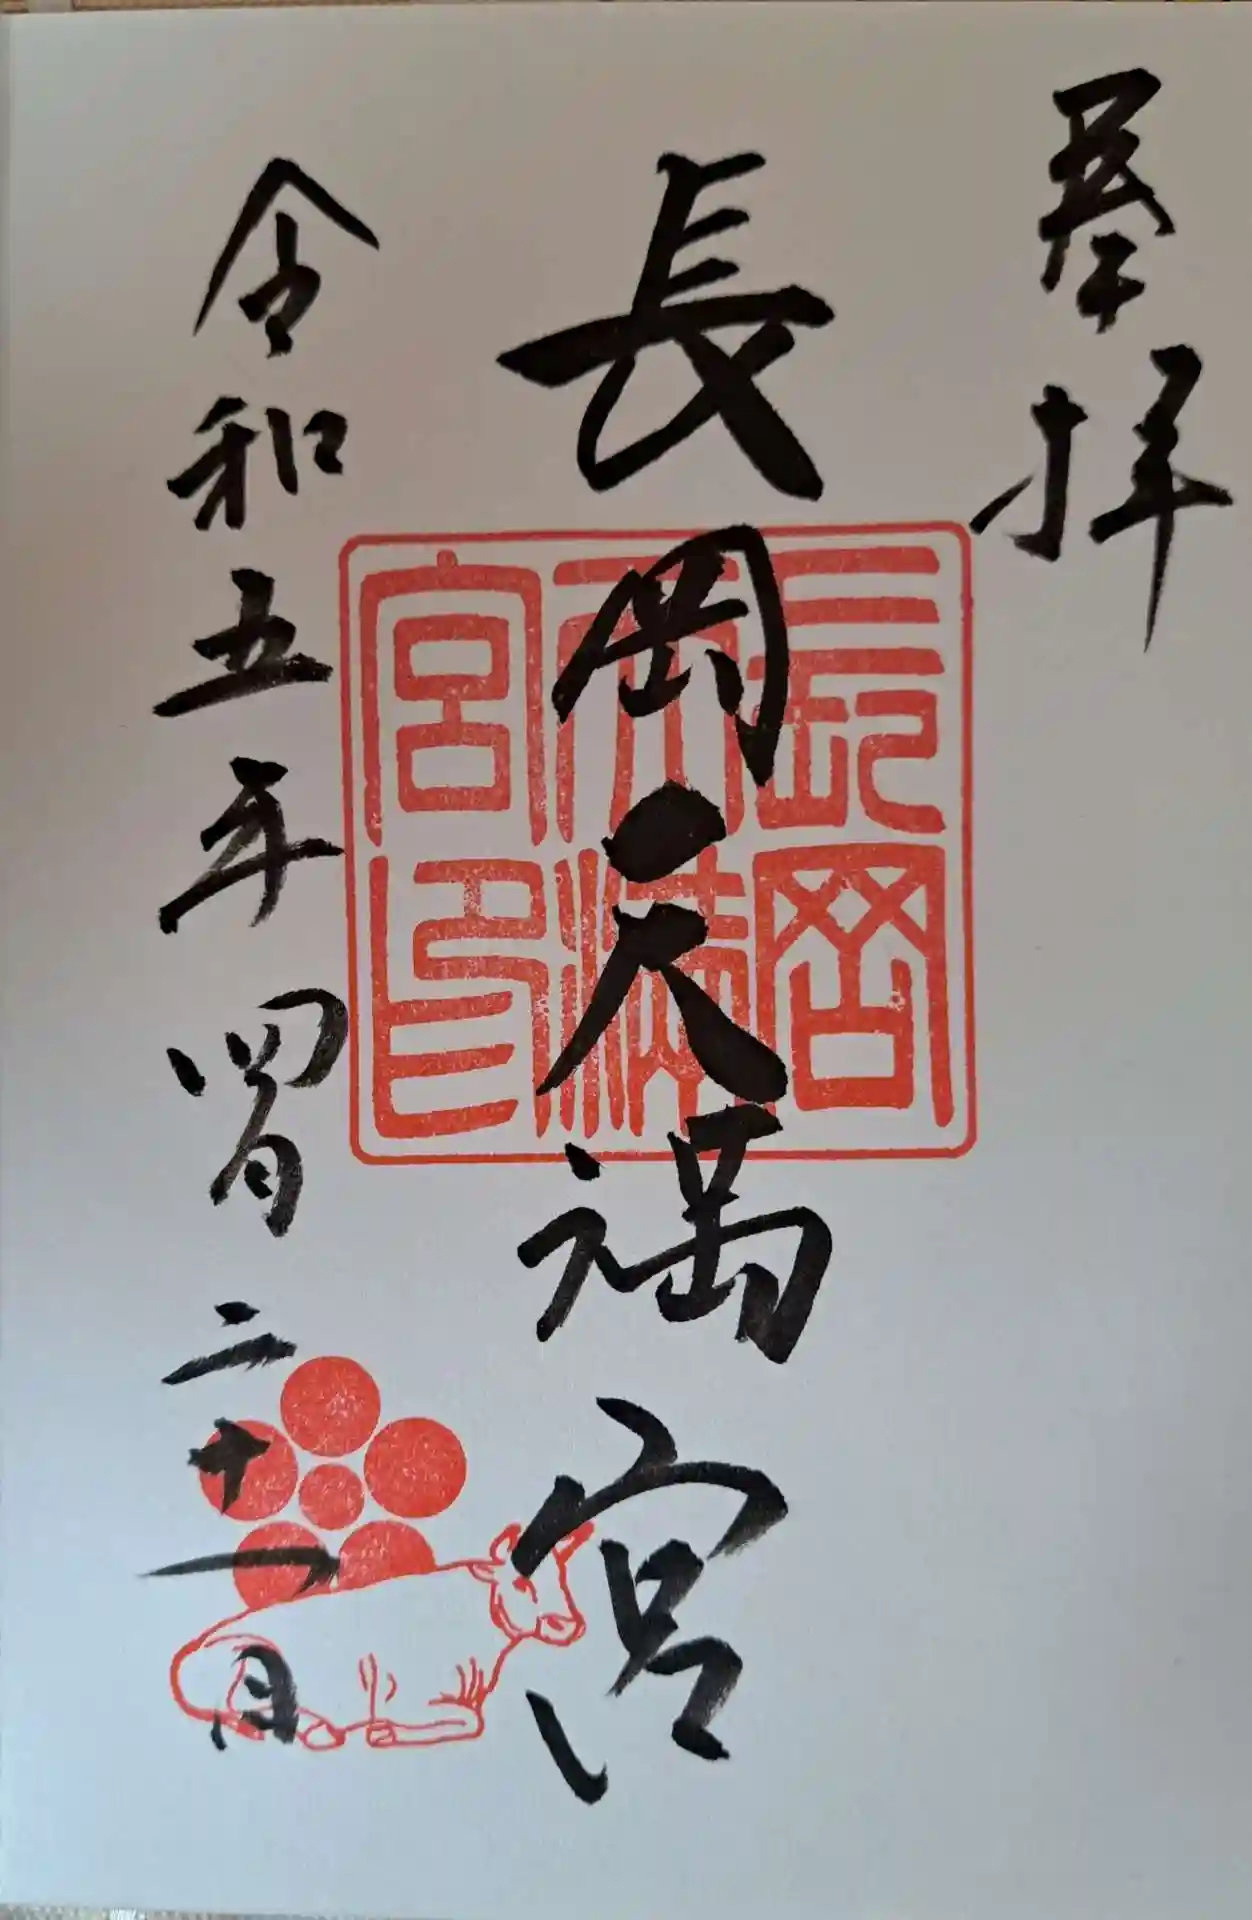 奉拝
長岡天満宮
長岡
天満
宮印
令和五年四月二十一日